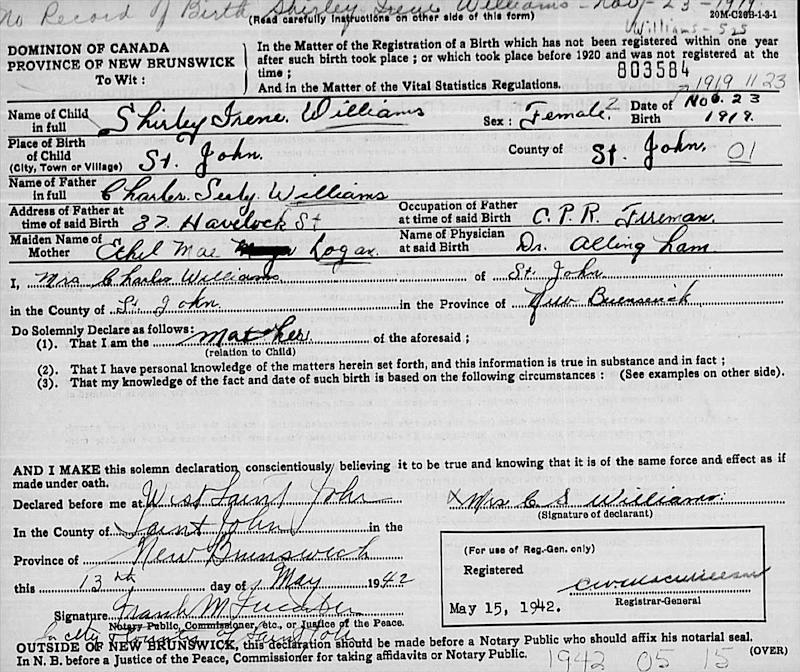 No Record of Birth Shirley Irene Williams - Nov - 23 - 1919.
(Read carefully instructions on other side of this form)
20M-C26B-1-3-1
Williams - 525
DOMINION OF CANADA
PROVINCE OF NEW BRUNSWICK
To Wit :
In the Matter of the Registration of a Birth which has not been registered within one year
after such birth took place ; or which took place before 1920 and was not registered at the
time ;
803584
And in the Matter of the Vital Statistics Regulations.
1919 11 23
Name of Child in full Shirley Irene Williams Sex : Female 2 Date of Birth Nov. 23 1919.
Place of Birth of Child (City, Town or Village) St. John. County of St. John. 01
Name of Father in full Charles Sealy Williams
Address of Father at time of said Birth 37 Havelock St Occupation of Father at time of said Birth C. P. R. Fireman.
Maiden Name of Mother Ethel Mae Logan. Name of Physician at said Birth Dr. Alling ham
I, Mrs Charles Williams of St. John
in the County of St John. in the Province of New Brunswick
Do Solemnly Declare as follows:
(1). That I am the mother of the aforesaid ;
(relation to Child)
(2). That I have personal knowledge of the matters herein set forth, and this information is true in substance and in fact ;
(3). That my knowledge of the fact and date of such birth is based on the following circumstances : (See examples on other side).
AND I MAKE this solemn declaration conscientiously believing it to be true and knowing that it is of the same force and effect as if
made under oath.
Declared before me at West Saint John
X Mrs C S Williams.
(Signature of declarant)
In the County of Saint John in the
Province of New Brunswick
this 13th day of May 1942
(For use of Reg.-Gen. only)
Registered
May 15, 1942.
Registrar-General
Signature Frank M
Notary Public, Commissioner, etc., or Justice of the Peace.
County of Saint John
OUTSIDE OF NEW BRUNSWICK, this declaration should be made before a Notary Public who should affix his notarial seal.
In N. B. before a Justice of the Peace, Commissioner for taking affidavits or Notary Public.
1942 05 15
(OVER)